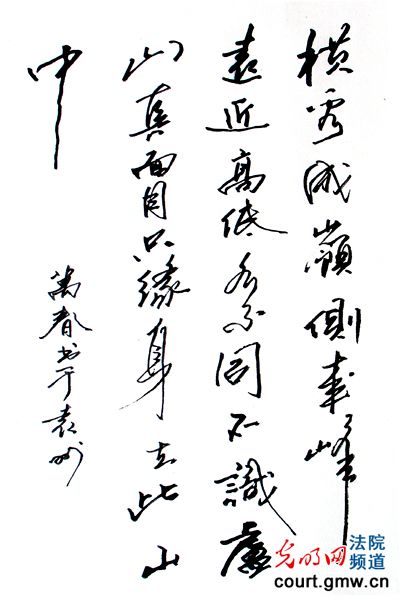 横看成嶺側成峰
遠近高低各不同不識廬
山真面目只緣身在此山
中
萬春书于袁州
光明网 法院频道
court.gmw.cn